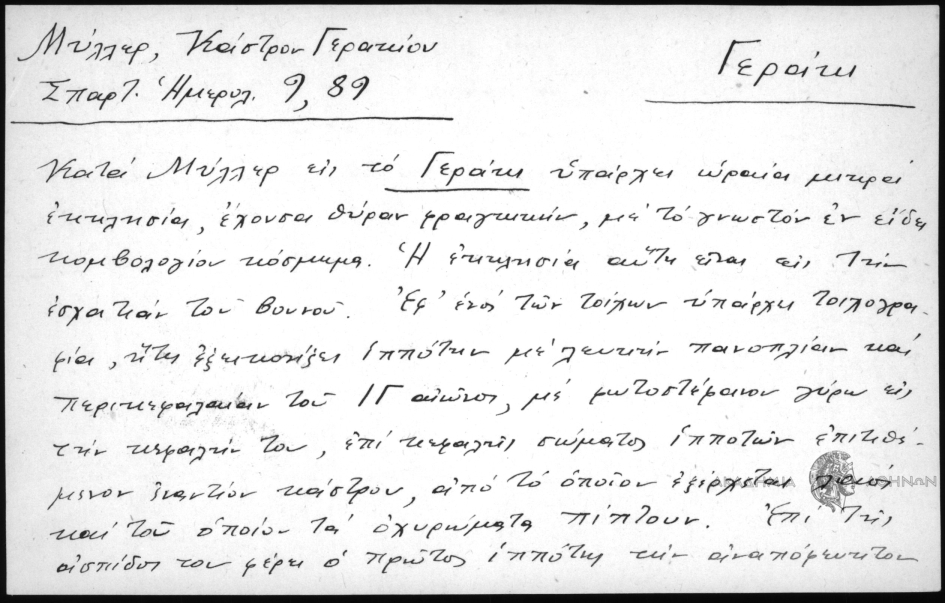 Μύλλερ, Κάστρον Γερακίου
Σπαρτ. Ἡμερολ. 9, 89
Γεράκι
Κατά Μύλλερ εις τό Γεράκι ὑπάρχει ὡραία μικρά
ἐκκλησία, ἔχουσα θύραν φραγκικήν, μέ τό γνωστόν ἐν εἴδει
κομβολογίου κόσμημα. Ἡ ἐκκλησία αὕτη εἶναι εις τήν
ἐσχατιάν τοῦ βουνοῦ. Ἐφ' ἑνός τῶν τοίχων ὑπάρχει τοιχογρα-
φία, ἥτις ἐξεικονίζει ἱππότην μέ λευκήν πανοπλίαν καί
περικεφαλαίαν τοῦ ΙΓ αἰῶνος, μέ φωτοστέφανον γύρω εις
τήν κεφαλήν του, ἐπί κεφαλῆς σώματος ἱπποτῶν ἐπιτιθέ-
μενον ἐναντίον κάστρου, ἀπό τό ὁποῖον ἐξέρχεται λαός
καί τοῦ ὁποίου τά ὀχυρώματα πίπτουν. Ἐπί τῆς
ἀσπίδος του φέρει ὁ πρῶτος ἱππότης τήν ἀναπόφευκτον
ΑΚΑΔΗΜΙΑ ΑΘΗΝΩΝ